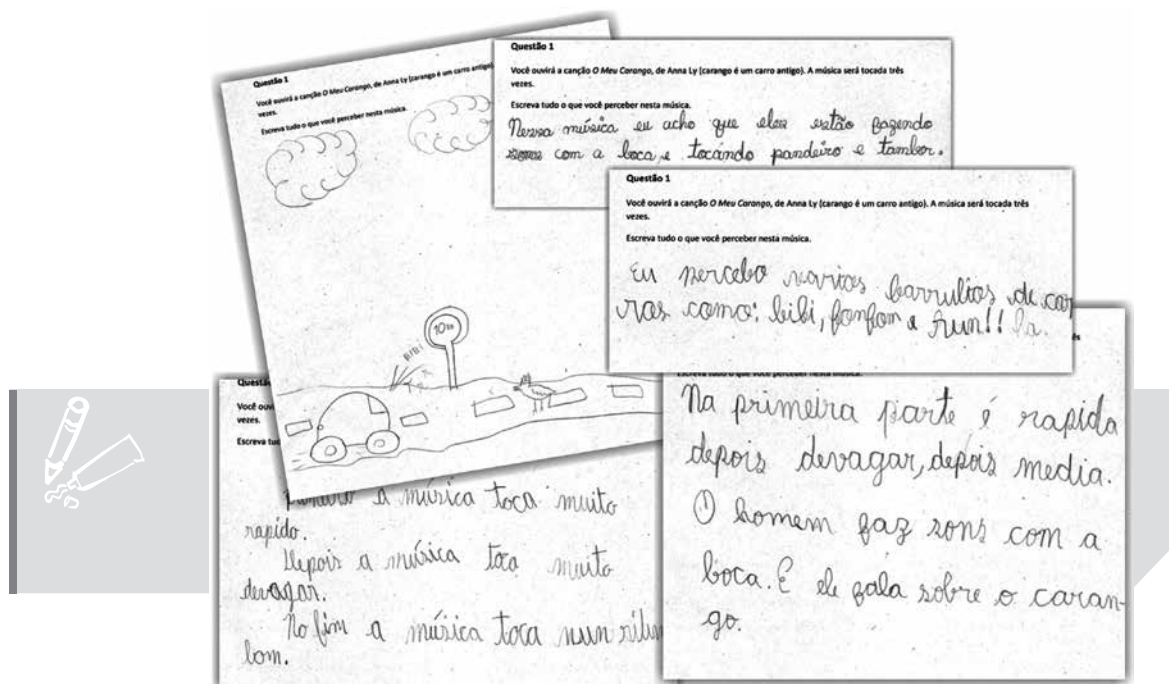 Questão 1
Você ouvirá a canção O Meu Carango, de Anna Ly (carango é um carro antigo)
vezes.
Escreva tudo o que você perceber nesta música.
BIBI
10
Questão 1
Você ouvirá a canção O Meu Carango, de Anna Ly (carango é um carro antigo). A música será tocada três
vezes.
Escreva tudo o que você perceber nesta música.
Nessa música eu acho que eles estão fazendo
com a boca, e tocando pandeiro e tambor.
Questão 1
Você ouvirá a canção O Meu Carango, de Anna Ly (carango é um carro antigo). A música será tocada três
vezes.
Escreva tudo o que você perceber nesta música.
Eu percebo varios barrulios de car
ros como: bibi, fonfom e
Você ouv
vezes.
Escreva
a música toca muito
rapido.
Depois a música toca muito
devagar.
No fim a música toca nun
bom.
Escreva tudo o que você perceber nesta música.
Na primeira parte é rapida
depois devagar, depois media.
O homem faz sons com a
boca. E ele fala sobre o caran-
go.